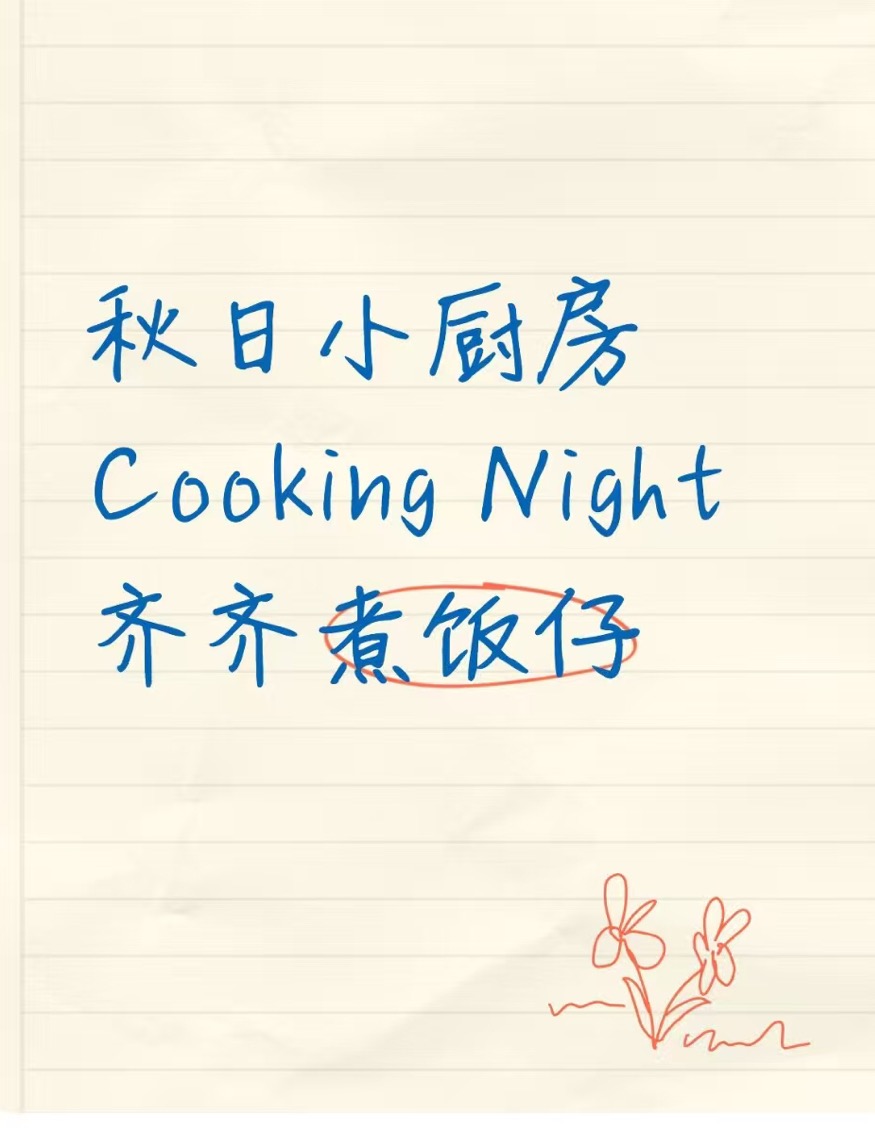 秋日小厨房
Cooking Night
齐齐煮饭仔